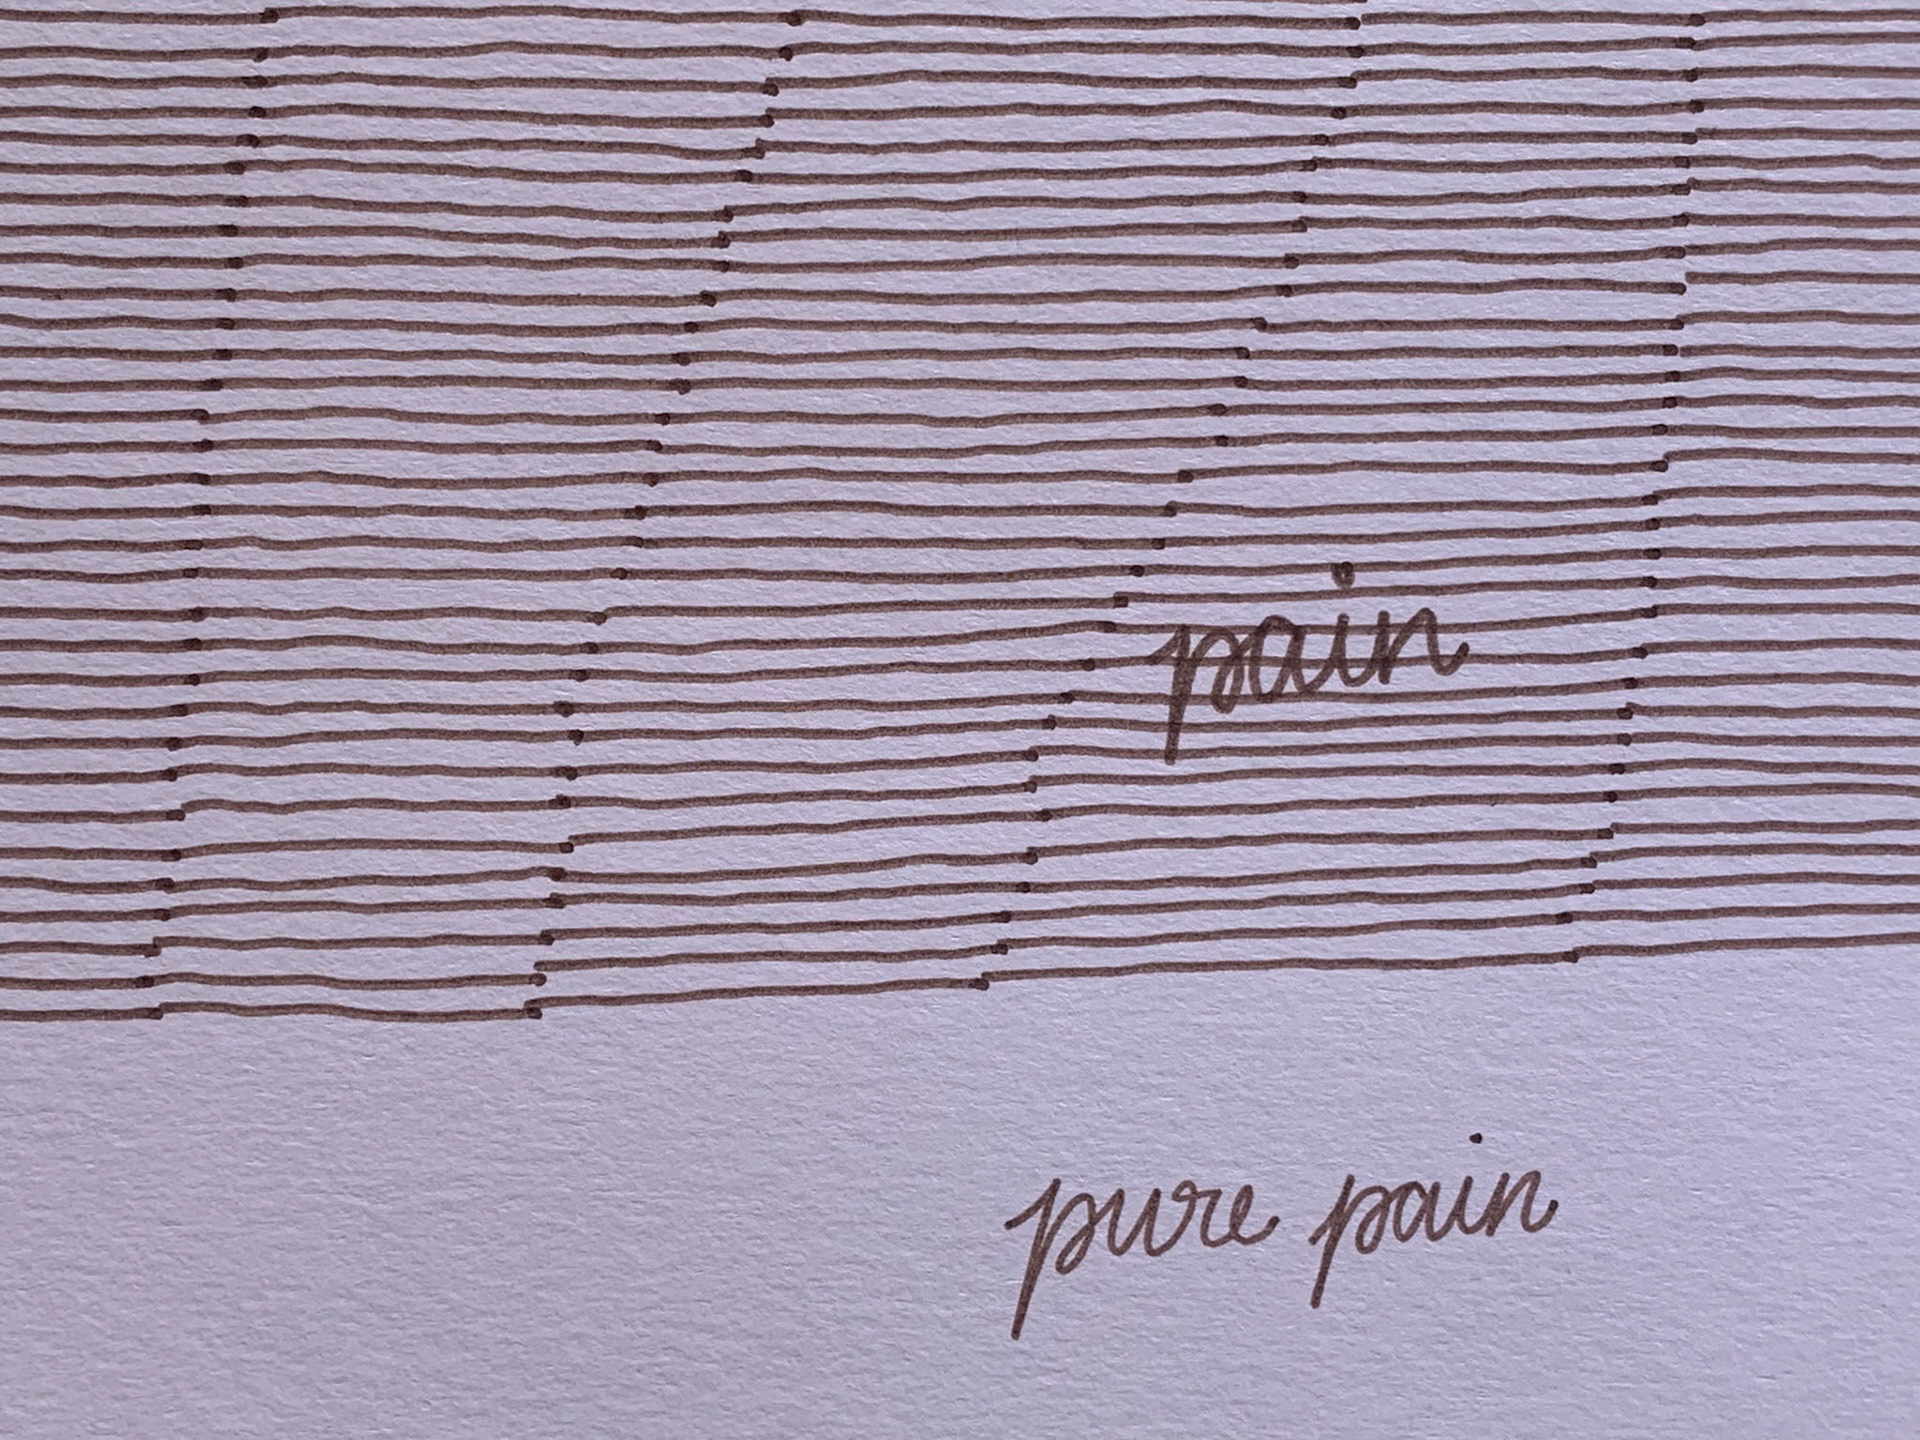 pain
pure pain